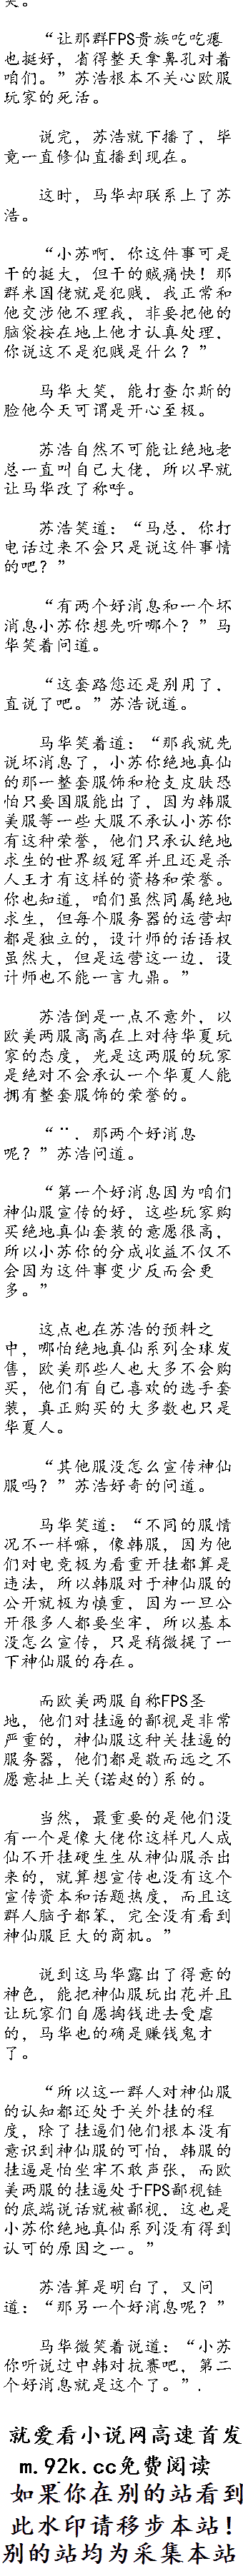 笑。
“让那群FPS贵族吃吃瘪
也挺好，省得整天拿鼻孔对着
咱们。”苏浩根本不关心欧服
玩家的死活。
说完，苏浩就下播了，毕
竟一直修仙直播到现在。
这时，马华却联系上了苏
浩。
“小苏啊，你这件事可是
干的挺大，但干的贼痛快！那
群米国佬就是犯贱，我正常和
他交涉他不理我，非要把他的
脑袋按在地上他才认真处理，
你说这不是犯贱是什么？”
马华大笑，能打查尔斯的
脸他今天可谓是开心至极。
苏浩自然不可能让绝地老
总一直叫自己大佬，所以早就
让马华改了称呼。
苏浩笑道：“马总，你打
电话过来不会只是说这件事情
的吧？”
“有两个好消息和一个坏
消息小苏你想先听哪个？”马
华笑着问道。
“这套路您还是别用了，
直说了吧。”苏浩说道。
马华笑着道：“那我就先
说坏消息了，小苏你绝地真仙
的那一整套服饰和枪支皮肤恐
怕只要国服能出了，因为韩服
美服等一些大服不承认小苏你
有这种荣誉，他们只承认绝地
求生的世界级冠军并且还是杀
人王才有这样的资格和荣誉。
你也知道，咱们虽然同属绝地
求生，但每个服务器的运营却
都是独立的，设计师的话语权
虽然大，但是运营这一边，设
计师也不能一言九鼎。”
苏浩倒是一点不意外，以
欧美两服高高在上对待华夏玩
家的态度，光是这两服的玩家
是绝对不会承认一个华夏人能
拥有整套服饰的荣誉的。
“¨．那两个好消息
呢？”苏浩问道。
“第一个好消息因为咱们
神仙服宣传的好，这些玩家购
买绝地真仙套装的意愿很高，
所以小苏你的分成收益不仅不
会因为这件事变少反而会更
多。”
这点也在苏浩的预料之
中，哪怕绝地真仙系列全球发
售，欧美那些人也大多不会购
买，他们有自己喜欢的选手套
装，真正购买的大多数也只是
华夏人。
“其他服没怎么宣传神仙
服吗？”苏浩好奇的问道。
马华笑道：“不同的服情
况不一样嘛，像韩服，因为他
们对电竞极为看重开挂都算是
违法，所以韩服对于神仙服的
公开就极为慎重，因为一旦公
开很多人都要坐牢，所以基本
没怎么宣传，只是稍微提了一
下神仙服的存在。
而欧美两服自称FPS圣
地，他们对挂逼的鄙视是非常
严重的，神仙服这种关挂逼的
服务器，他们都是敬而远之不
愿意扯上关(诺赵的)系的。
当然，最重要的是他们没
有一个是像大佬你这样凡人成
仙不开挂硬生生从神仙服杀出
来的，就算想宣传也没有这个
宣传资本和话题热度，而且这
群人脑子都笨，完全没有看到
神仙服巨大的商机。”
说到这马华露出了得意的
神色，能把神仙服玩出花并且
让玩家们自愿掏钱进去受虐
的，马华也的确是赚钱鬼才
了。
“所以这一群人对神仙服
的认知都还处于关外挂的程
度，除了挂逼们他们根本没有
意识到神仙服的可怕，韩服的
挂逼是怕坐牢不敢声张，而欧
美两服的挂逼处于FPS鄙视链
的底端说话就被鄙视，这也是
小苏你绝地真仙系列没有得到
认可的原因之一。”
苏浩算是明白了，又问
道：“那另一个好消息呢？”
马华微笑着说道：“小苏
你听说过中韩对抗赛吧，第二
个好消息就是这个了。”.
就爱看小说网高速首发
m.92k.cc免费阅读
如果你在别的站看到
此水印请移步本站！
别的站均为采集本站